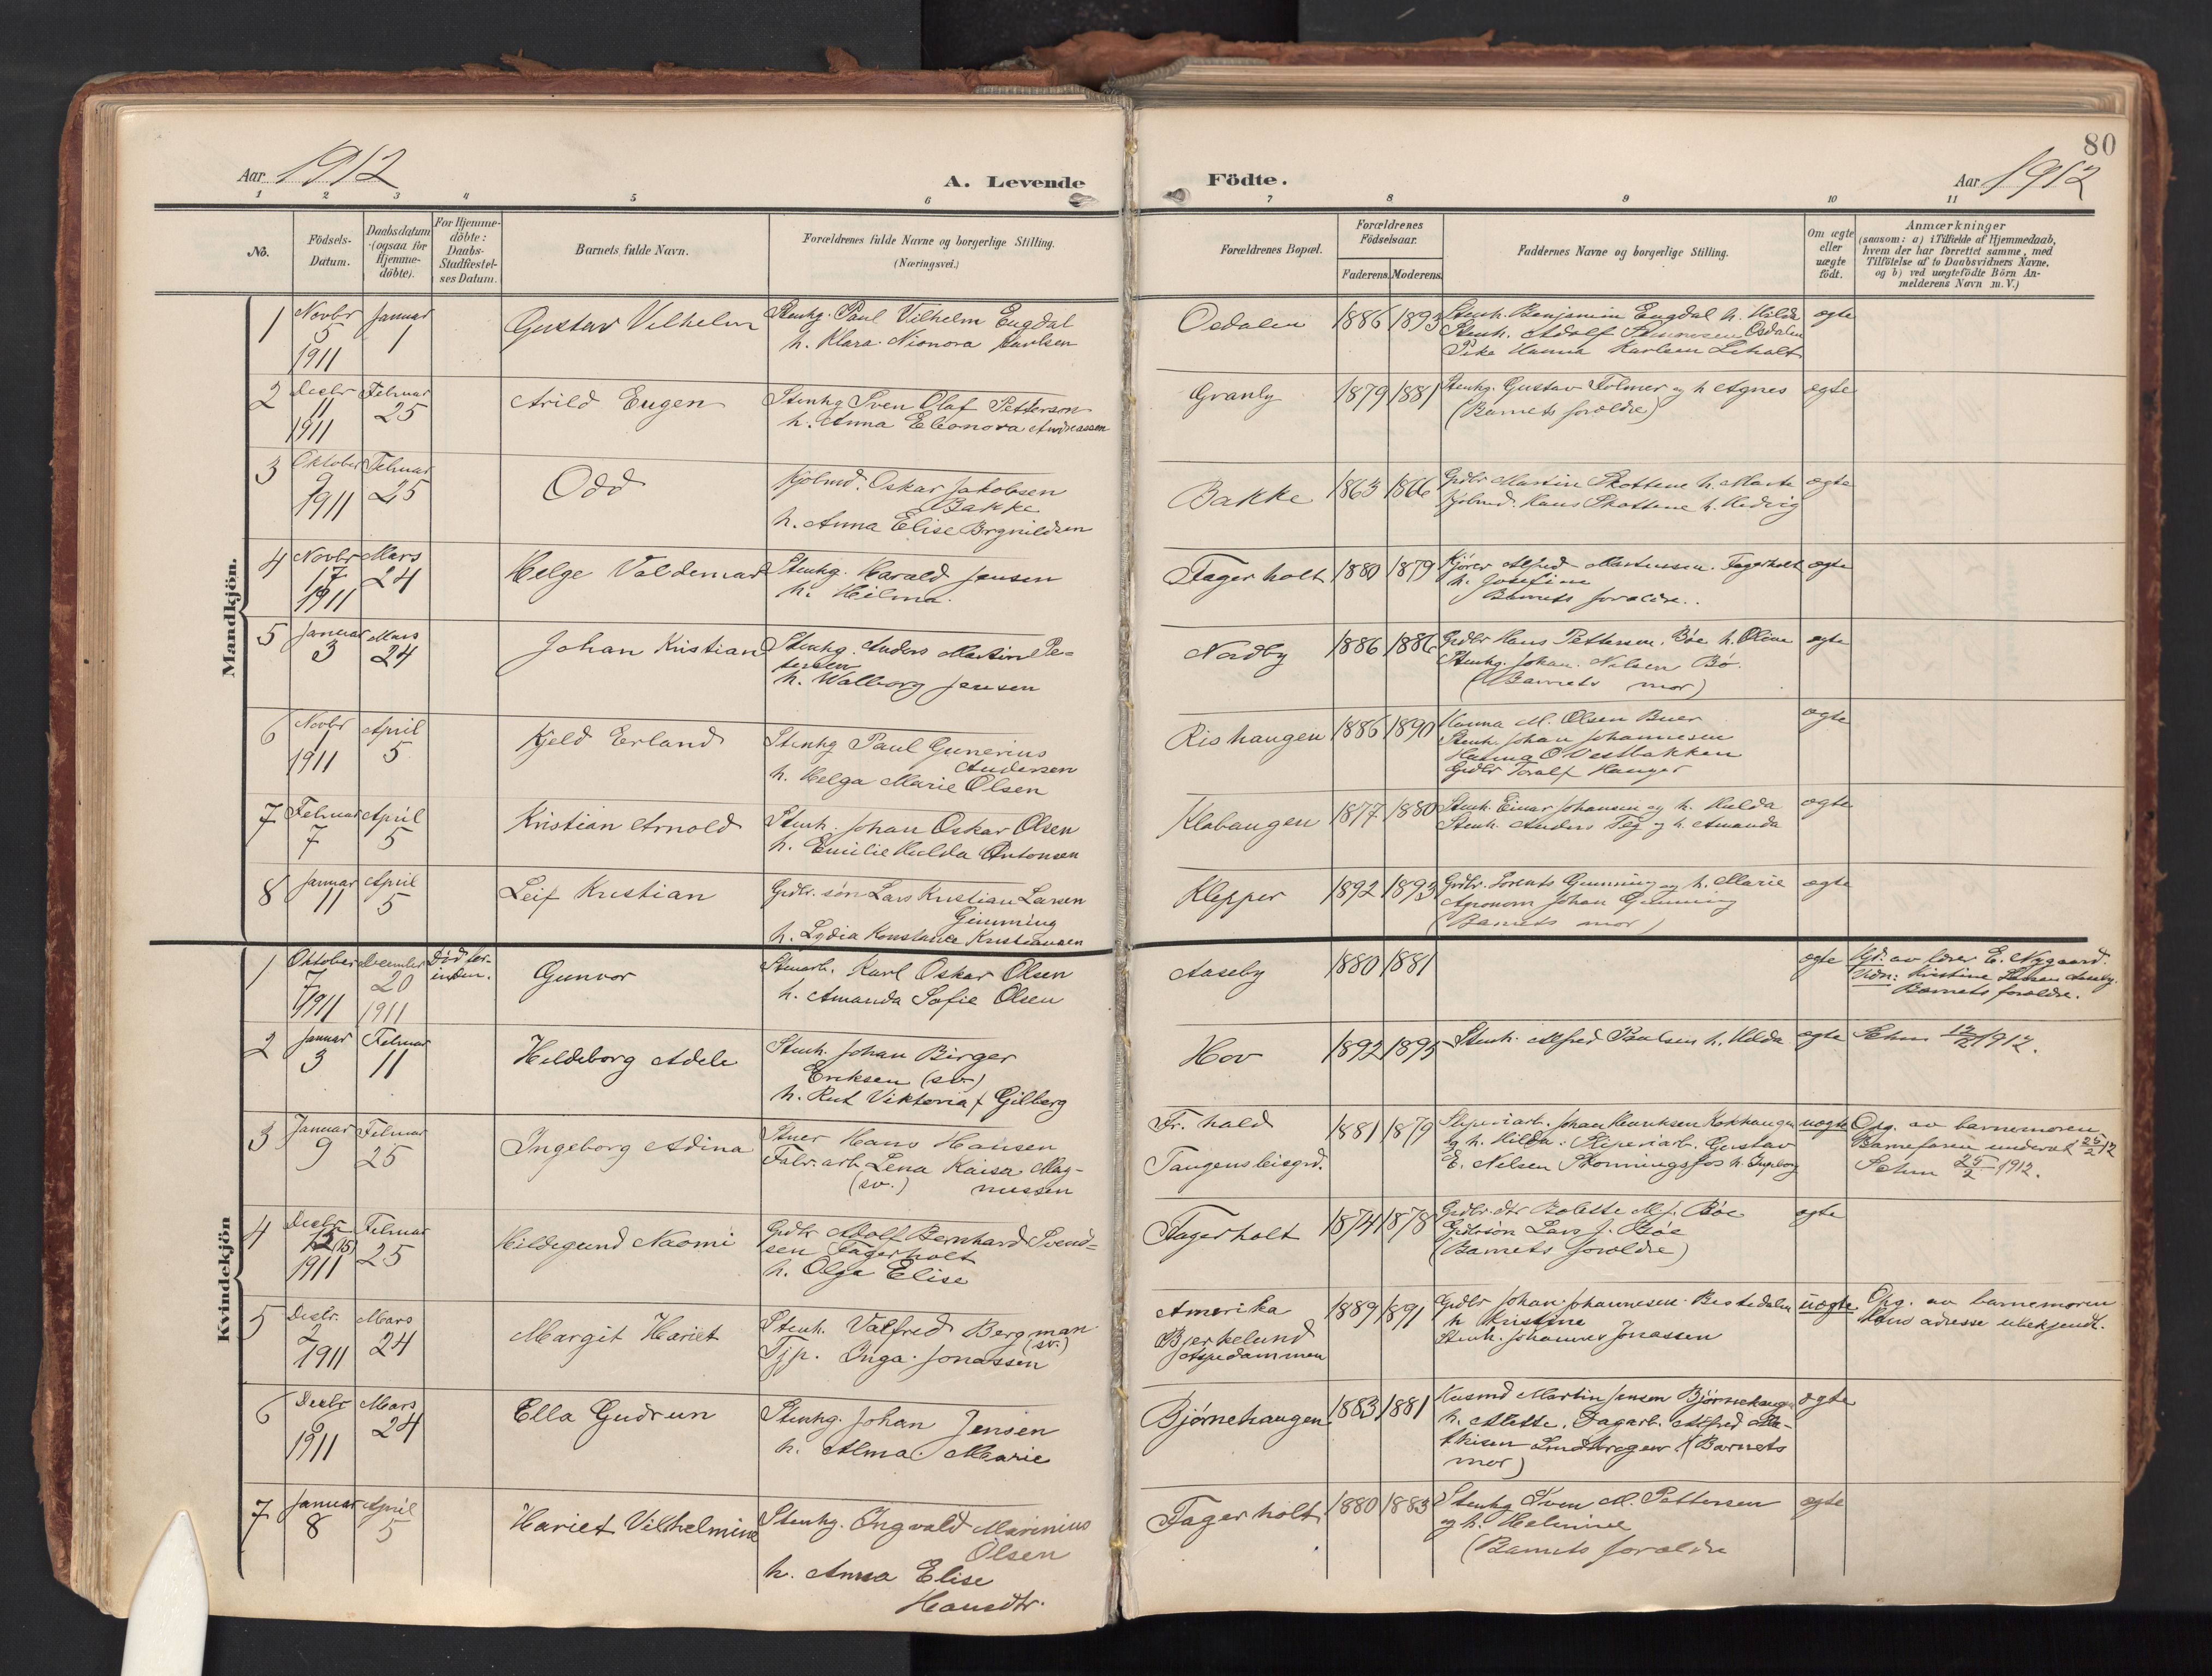 80
Aar 1912
A. Levende
Födte.
Aar 1912
1 2 3 4 5 6 7 8 9 10 11
No.
Födsels-
Datum.
Daabsdatum
(ogsaa for
Hjemme-
döbte).
For Hjemme-
döbte:
Daabs-
Stadfæstel-
ses Datum.
Barnets fulde Navn.
Forældrenes fulde Navne og borgerlige Stilling.
(Næringsvei.)
Forældrenes Bopæl.
Forældrenes
Födselsaar.
Faderens. Moderens.
Faddernes Navne og borgerlige Stilling.
Om ægte
eller
uægte
födt.
Anmærkninger
(saasom: a) i Tilfælde af Hjemmedaab,
hvem der har forrettet samme, med
Tilföielse af to Daabsvidners Navne,
og b) ved uægtefödte Börn An-
melderens Navn m. V.)
Mandkjön.
1
Novbr
5
1911
Januar
1
Gustav Vilhelm
Stenhg. Paul Vilhelm Engdal
h. Klara Nionora Paulsen
Osdalen
1886
1893
Stenh. Benjamin Engdal h. Hilda
Stenh. Adolf Osdalen
Pike Hanna Karlsen Liholt
ægte
2
Decbr
11
1911
Februar
25
Arild Eugen
Stenhg Sven Olaf Petterson
h. Anna Eleonora Andreassen
Granly
1879
1881
Stenhg. Gustav Folmer og h Agnes
(Barnets forældre)
ægte
3
Oktober
9
1911
Februar
25
Odd
Kjølmd. Oskar Jakobsen
Bakke
h. Anna Elise Brynildsen
Bakke
1863
1866
Grdbr Martin Skottene h. Marte
Kjølmd. Hans Skottene h. Hedvig
ægte
4
Novbr
17
1911
Mars
24
Helge Valdemar
Stenhg. Harald Jensen
h. Hilma.
Fagerholt
1880
1879
Kjører Alfred Martinsen. Fagerholt
h. Josefine
Barnets forældre.
ægte
5
Januar
3
Mars
24
Johan Kristian
Stenhg. Anders Martin Pe-
tersen
h. Walborg Jensen
Nordby
1886
1886
Grdbr Hans Pettersen. Bøe h. Oline
Stenhg. Johan Nilsen Bø.
(Barnets mor)
ægte
6
Novbr
1
1911
April
5
Kjeld Erland
Stenhg Paul Gunerius
Andersen
h. Helga Marie Olsen
Rishaugen
1886
1890
Hanna M. Olsen Buer
Stenh. Johan Johannesen
Hanna O Vestbakken
Grdbr Toralf Hanger
ægte
7
Februar
7
April
5
Kristian Arnold
Stenh. Johan Oskar Olsen
h. Emilie Hulda Antonsen
Klohaugen
1877
1880
Stenh. Einar Johansen og h. Hulda
Stenh. Anders Teg og h. Amanda
ægte
8
Januar
11
April
5
Leif Kristian
Grdbr. søn Lars Kristian Larsen
Gimming
h. Lydia Konstance Kristiansen
Klepper
1892
1893
Grdbr. Lorents Gimming og h. Marie
Agronom Johan Gimming
(Barnets mor)
ægte
Kvindekjön
1
Oktober
7
1911
December
20
1911
Død for-
inden.
Gunvor
Stenarb. Karl Oskar Olsen
h. Amanda Sofie Olsen
Aaseby
1880
1881
ægte
Hjd. av lærer E. Nygaard.
Vidn: Kristine Larsen Aaseby.
Barnets forældre.
2
Januar
3
Februar
11
Hildeborg Adele
Stenh. Johan Birger
Eriksen (sv.)
h. Rut Viktoria f Gilberg
Hov
1892
1895
Stenh. Alfred Paulsen h. Hilda
ægte
Schm 12/2 1912.
3
Januar
9
Februar
25
Ingeborg Adina
Stuer Hans Hansen
Fabr. arb. Lena Kaisa Mag-
(sv.) nussen
Fr. hald
Tangens leiegrd.
1881
1879
Sliperiarb. Johan Henriksen Kokhaugen
og h. Hilda. Sliperiarb. Gustav
E. Nilsen Skonningsfos h. Ingeborg
uægte
Opg. av barnemoren
Barnefaren underret 25/2 12
Schm 25/2 1912.
4
Decbr
13 (15)
1911
Februar
25
Hildegund Naomi
Grdbr Adolf Bernhard Svend-
sen Fagerholt
h. Olga Elise
Fagerholt
1874
1878
Grdbr. dtr Bolette M. J. Bøe
Grdbrsøn Lars J. Bøe
(Barnets forældre)
ægte
5
Decbr.
2
1911
Mars
24
Margit Hariet
Stenh. Valfred Bergman
(sv.)
Tjp. Inga Jonassen
Amerika
Bjerkelund
Aspedammen
1889
1891
Grdbr Johan Johannesen Bestedalen
h Kristine
Stenh. Johannes Jonassen
uægte.
Opg. av barnemoren
Hans adresse ubekjendt.
6
Decbr
9
1911
Mars
24
Ella Gudrun
Stenhg. Johan Jensen
h. Alma Marie
Bjørnehaugen
1883
1881
Husmd Martin Jensen Bjørnehaugen
h. Alette. Dagarb. Alfred Ma-
thisen Lundhragen (Barnets
mor)
ægte
7
Januar
8
April
5
Hariet Vilhelmine
Stenhg. Ingvald Marinius
Olsen
h. Anna Elise
Hansdtr.
Fagerholt
1880
1883
Stenhg Sven M. Pettersen
og h. Helmine
(Barnets forældre
ægte